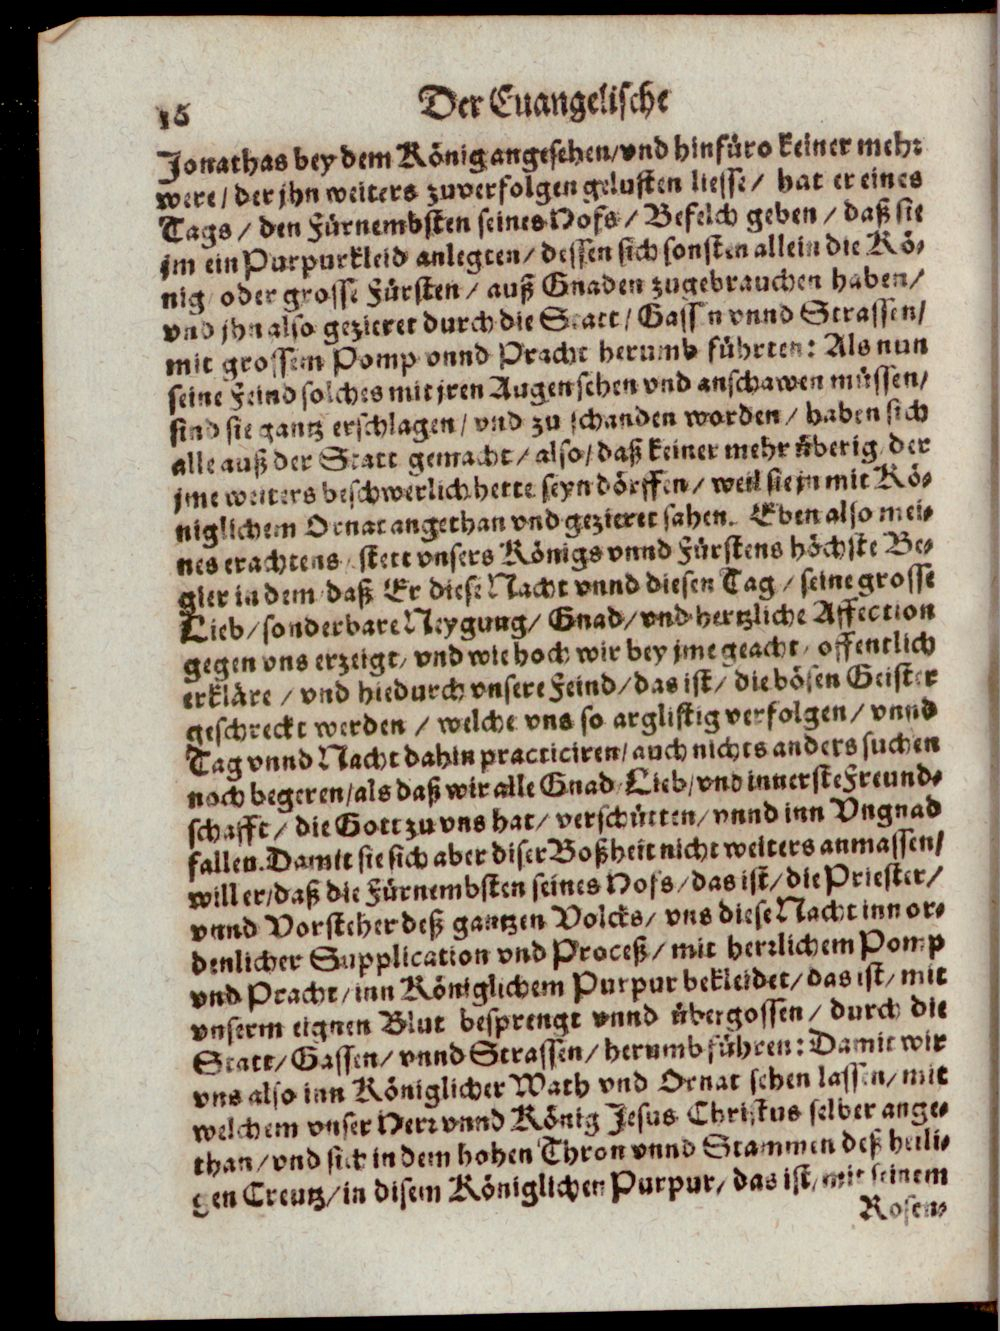 16 Der Euangelische
Jonathas bey dem König angesehen/vnd hinfüro keiner mehr
were/ der jhn weiters zuverfolgen gelusten liesse/ hat er eines
Tags/ den Fürnembsten seines Hofs/ Befelch geben/ daß sie
jm ein Purpurkleid anlegten/ dessen sich sonsten allein die Kö-
nig oder grosse Fürsten/ auß Gnaden zugebrauchen haben/
vnd jhn also gezieret durch die Statt/ Gassen vnnd Strassen/
mit grossem Pomp vnnd Pracht herumb führten: Als nun
seine Feind solches mit jren Augen sehen vnd anschawen müssen/
sind sie gantz erschlagen/ vnd zu schanden worden/ haben sich
alle auß der Statt gemacht/ also/ daß keiner mehr überig/ der
jme weiters beschwerlich hette seyn dörffen/ weil sie jn mit Kö-
niglichem Ornat angethan vnd gezieret sahen. Eben also mei-
nes erachtens/ stett vnsers Königs vnnd Fürstens höchste Be-
gier in dem/ daß Er diese Nacht vnnd diesen Tag/ seine grosse
Lieb/ sonderbare Neygung/ Gnad/ vnd hertzliche Affection
gegen vns erzeigt/ vnd wie hoch wir bey jme geacht/ offentlich
erkläre/ vnd hiedurch vnsere Feind/ das ist/ die bösen Geister
geschreckt werden/ welche vns so arglistig verfolgen/ vnnd
Tag vnnd Nacht dahin practiciren/ auch nichts anders suchen
noch begeren/als daß wir alle Gnad/ Lieb/ vnd innerste Freund-
schafft/ die Gott zu vns hat/ verschütten/ vnnd inn Vngnad
fallen. Damit sie sich aber diser Boßheit nicht weiters anmassen/
will er/daß die Fürnembsten seines Hofs/ das ist/ die Priester/
vnnd Vorsteher deß gantzen Volcks/ vns diese Nacht inn or-
denlicher Supplication vnd Proceß/ mit herrlichem Pomp
vnd Pracht/ inn Königlichem Purpur bekleidet/ das ist/ mit
vnserm eignen Blut besprengt vnnd übergossen/ durch die
Statt/ Gassen/ vnnd Strassen/ herumb führen: Damit wir
vns also inn Königlicher Wath vnd Ornat sehen lassen/ mit
welchem vnser Herr vnnd König Jesus Christus selber ange-
than/ vnd sich in dem hohen Thron vnnd Stammen deß heili-
gen Creutz/ in disem Königlichen Purpur/ das ist/ mit seinem
Rosen-